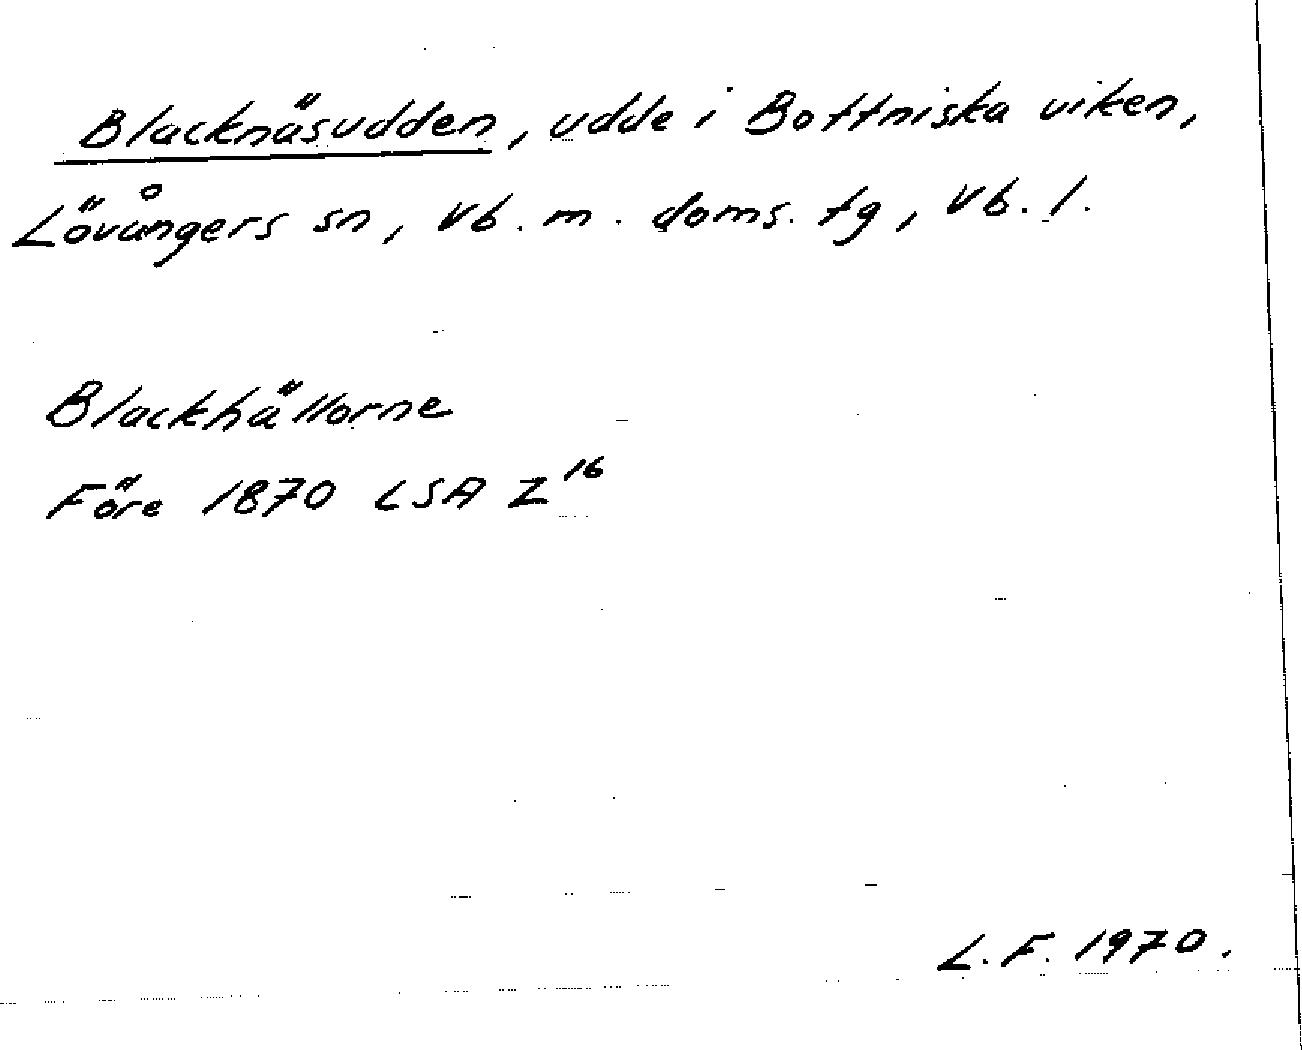 Blacknäsudden, udde i Bottniska viken,
Lövångers sn, Vb. m. doms. tg, Vb. l.
Blackhällorne
Före 1870 LSA Z16
L.F. 1970.